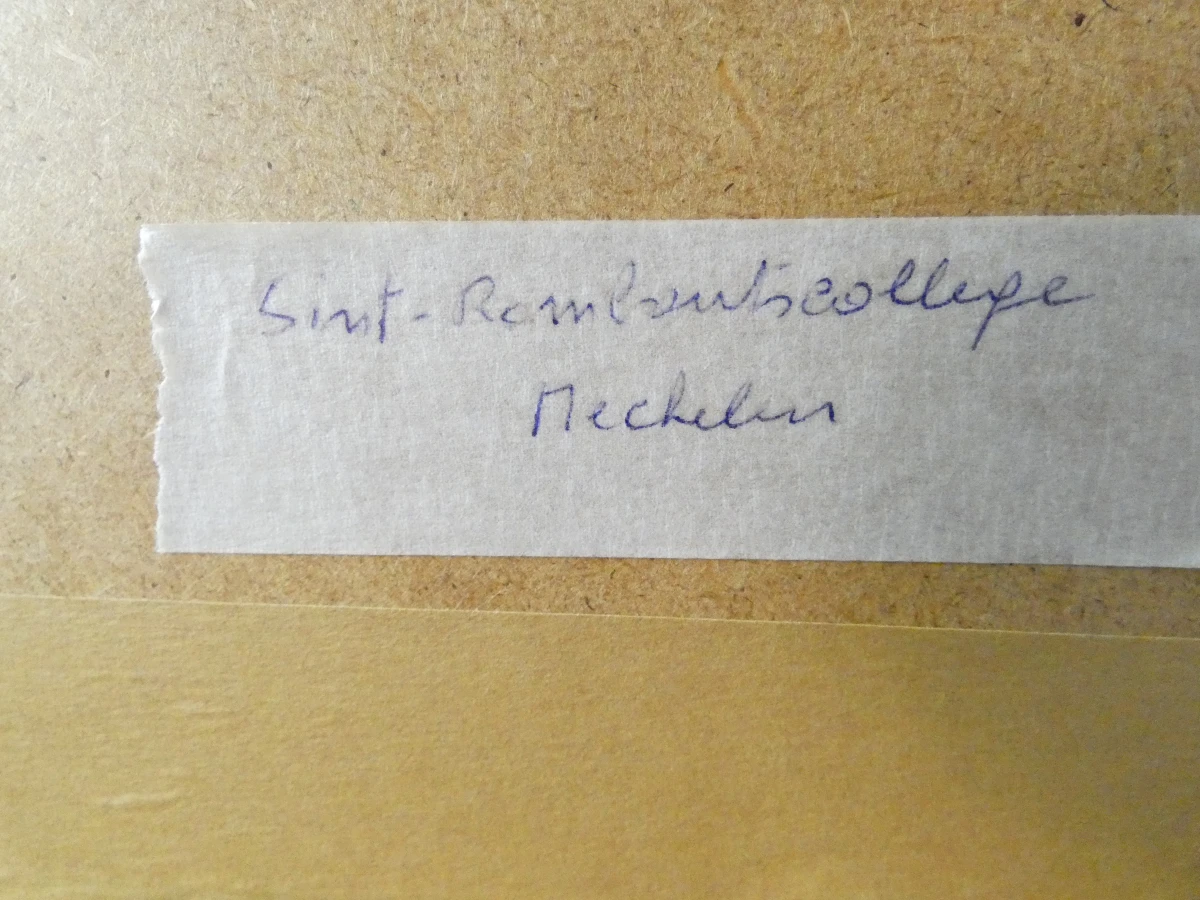 Sint-Romboutscollege
Mechelen